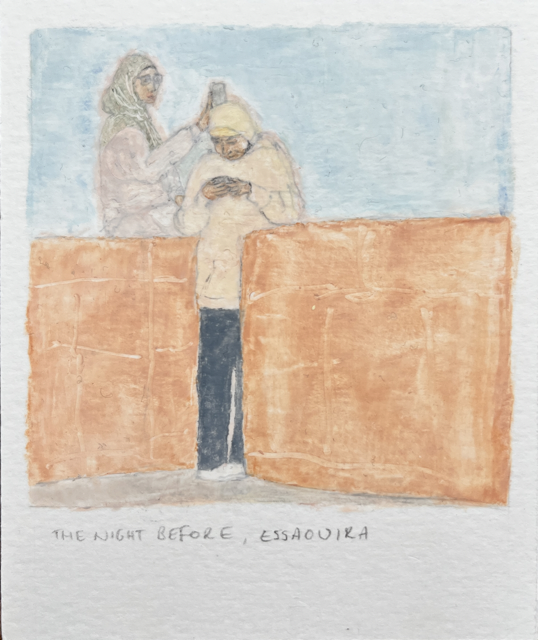 THE NIGHT BEFORE, ESSAOUIRA